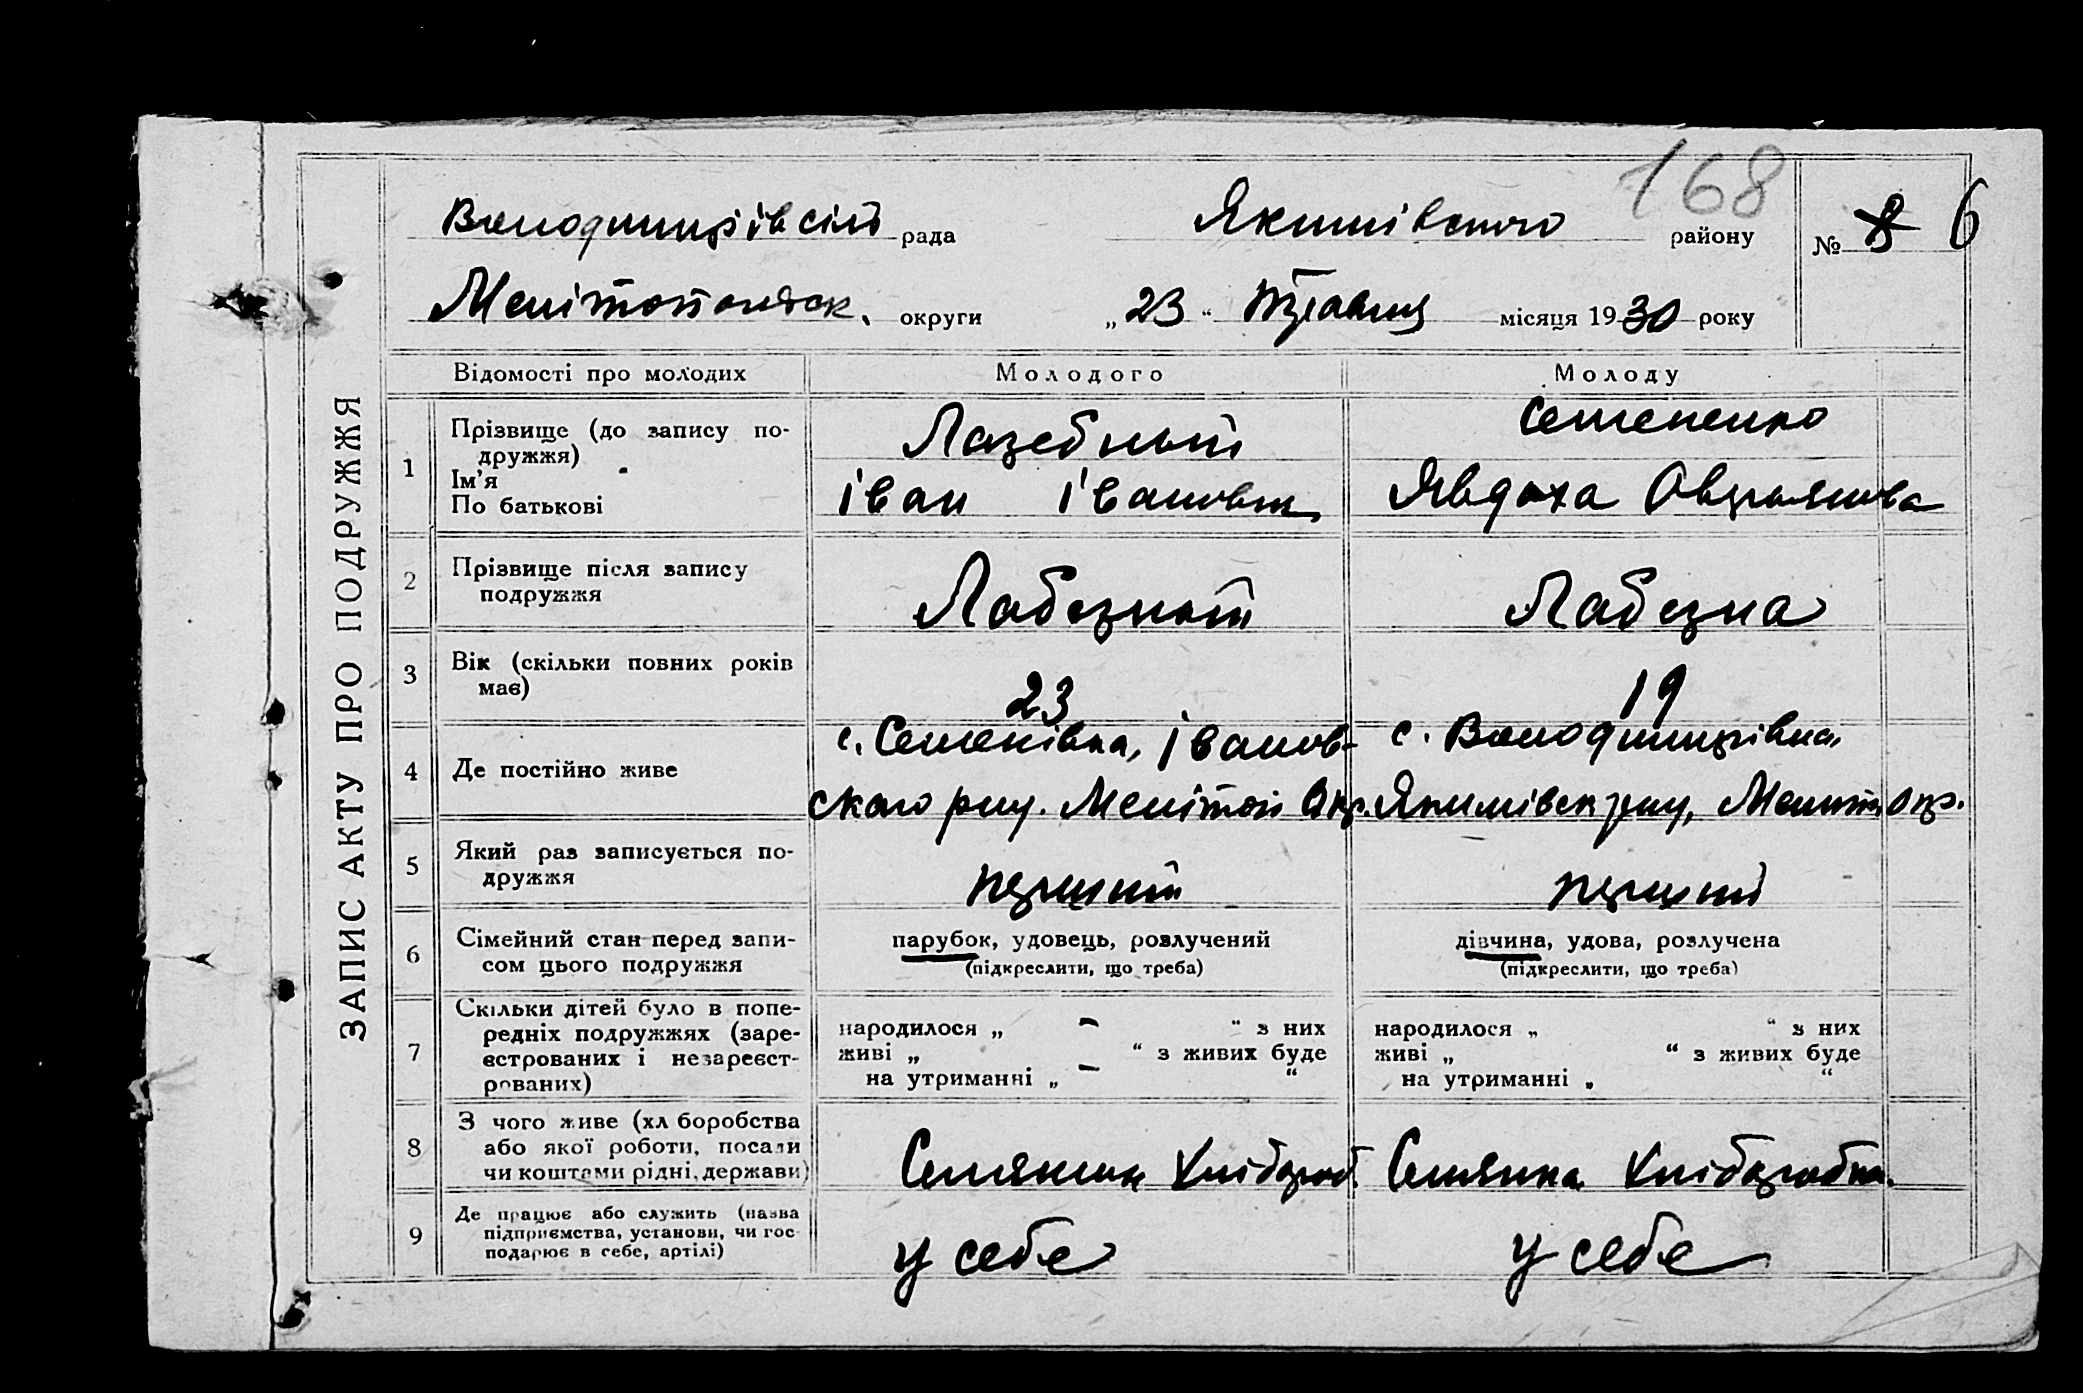 168
Володимирівсіль рада Якимівського району № 8 6
Мелітопольск. округи „23“ Травня місяця 1930 року
ЗАПИС АКТУ ПРО ПОДРУЖЖЯ
Відомості про молодих Молодого Молоду
1 Прізвище (до запису по-
дружжя)
Ім'я
По батькові
Лазебный
Іван Івановит
Семененко
Явдоха Овдрьянова
2 Прізвище після запису
подружжя
Лабезный
Лабезна
3 Вік (скільки повних років
має)
23
19
4 Де постійно живе
с. Семенівка, Іванов-
ского рну. Мелітоп Окр.
с. Володимирівка,
Якимівск рну, Меліт. Окр.
5 Який раз записується по-
дружжя
перший
перший
6 Сімейний стан перед запи-
сом цього подружжя
парубок, удовець, розлучений
(підкреслити, що треба)
дівчина, удова, розлучена
(підкреслити, що треба)
7 Скільки дітей було в попе-
редніх подружжях (заре-
єстрованих і незареєст-
рованих)
народилося „ – “ з них
живі „ – “ з живих буде
на утриманні „ – “
народилося „ “ з них
живі „ “ з живих буде
на утриманні „ “
8 З чого живе (хліборобства
або якої роботи, посади
чи коштами рідні, держави)
Селянин Хлібороб.
Селянка Хлібобробка.
9 Де працює або служить (назва
підприємства, установи, чи гос
подарює в себе, артілі)
у себе
у себе